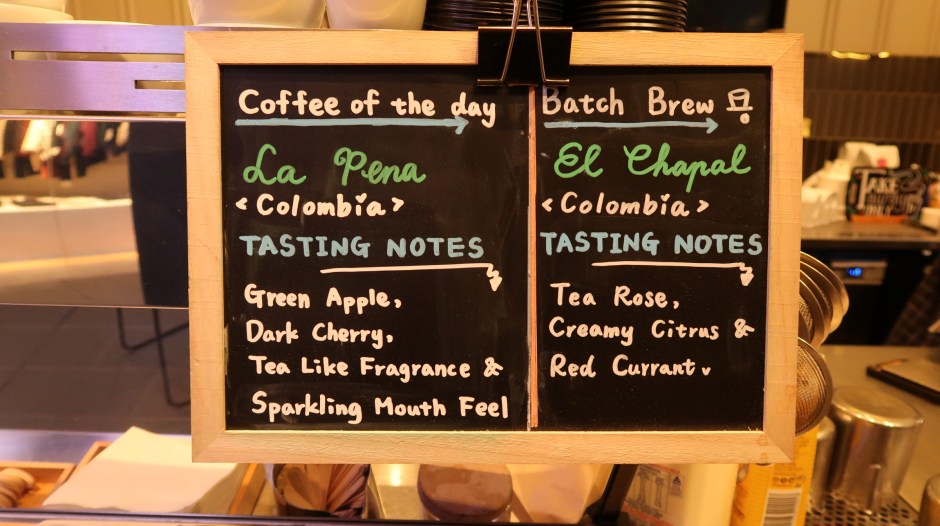 Coffee of the day
La Pena
<Colombia>
TASTING NOTES
Green Apple,
Dark Cherry,
Tea Like Fragrance &
Sparkling Mouth Feel
Batch Brew
El Chapal
<Colombia>
TASTING NOTES
Tea Rose,
Creamy Citrus &
Red Currant.
TAKE